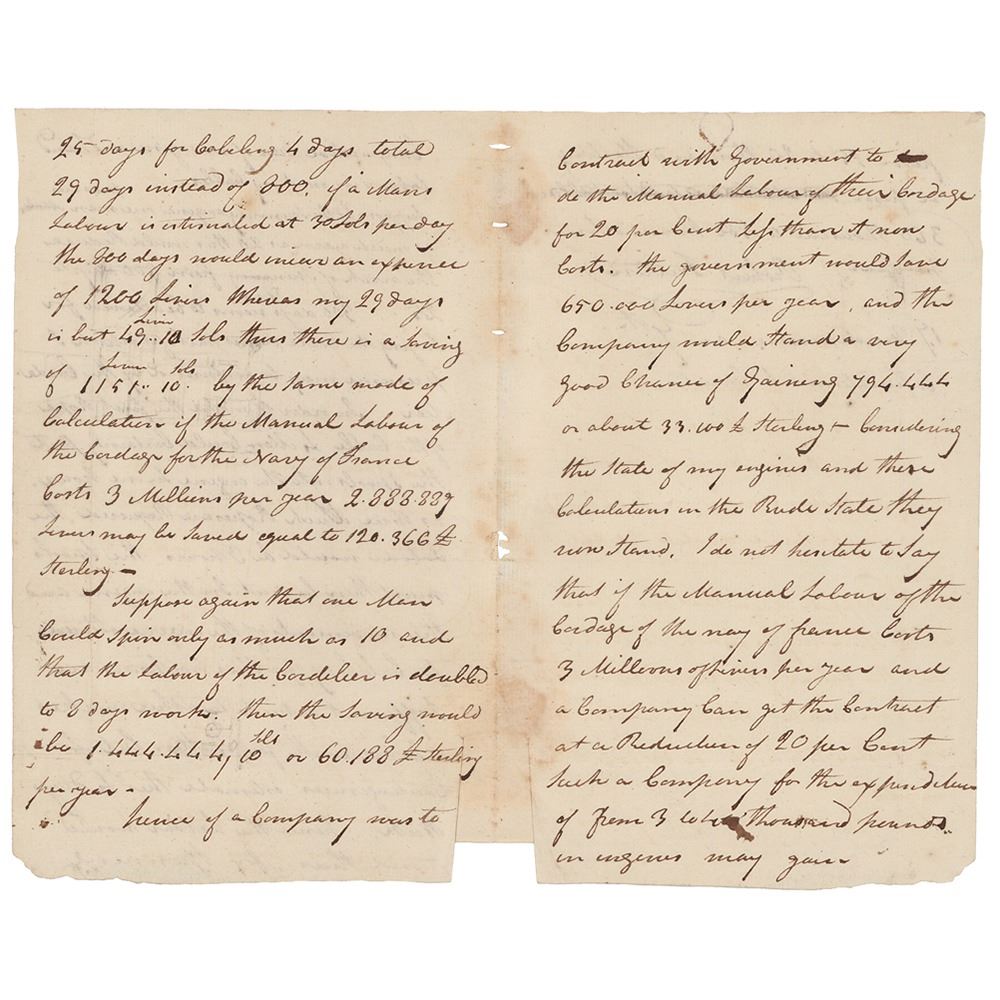 25 days for Cabeling 4 days total
29 days instead of 800. if a Mans
Labour is estimated at 30 Sols per day
the 800 days would incur an expence
of 1200 Livers Whereas my 29 days
Livers
is but 49.. 10 Sols thus there is a Saving
Livers Sols
of 1151.. 10. by the same mode of
Calculation if the Manual Labour of
the Cordage for the Navy of France
Costs 3 Millions per year 2.888.889
Livers may be Saved equal to 120.366 £
Sterling —
Suppose again that one Man
Could Spin only as much as 10 and
that the Labour of the Cordelier is doubled
to 8 days work. then the Saving would
be 1.444.444, 10 sols or 60.188 £ Sterling
per year -
hence if a Company was to
Contract with Government to
do the Manual Labour of their Cordage
for 20 per Cent Less than it now
Costs. the government would Save
650.000 Livers per year, and the
Company would Stand a very
good Chance of Gaineng 794.444
or about 33.100 £ Sterling — Considering
the State of my engines and these
Calculations in the Rude State they
now Stand. I do not hesitate to Say
that if the Manual Labour of the
Cordage of the navy of france Costs
3 Millions of Livers per year and
a Company Can get the Contract
at a Reduction of 20 per Cent
Such a Company for the expenditure
of From 3 to thousand pounds..
in engines may gain